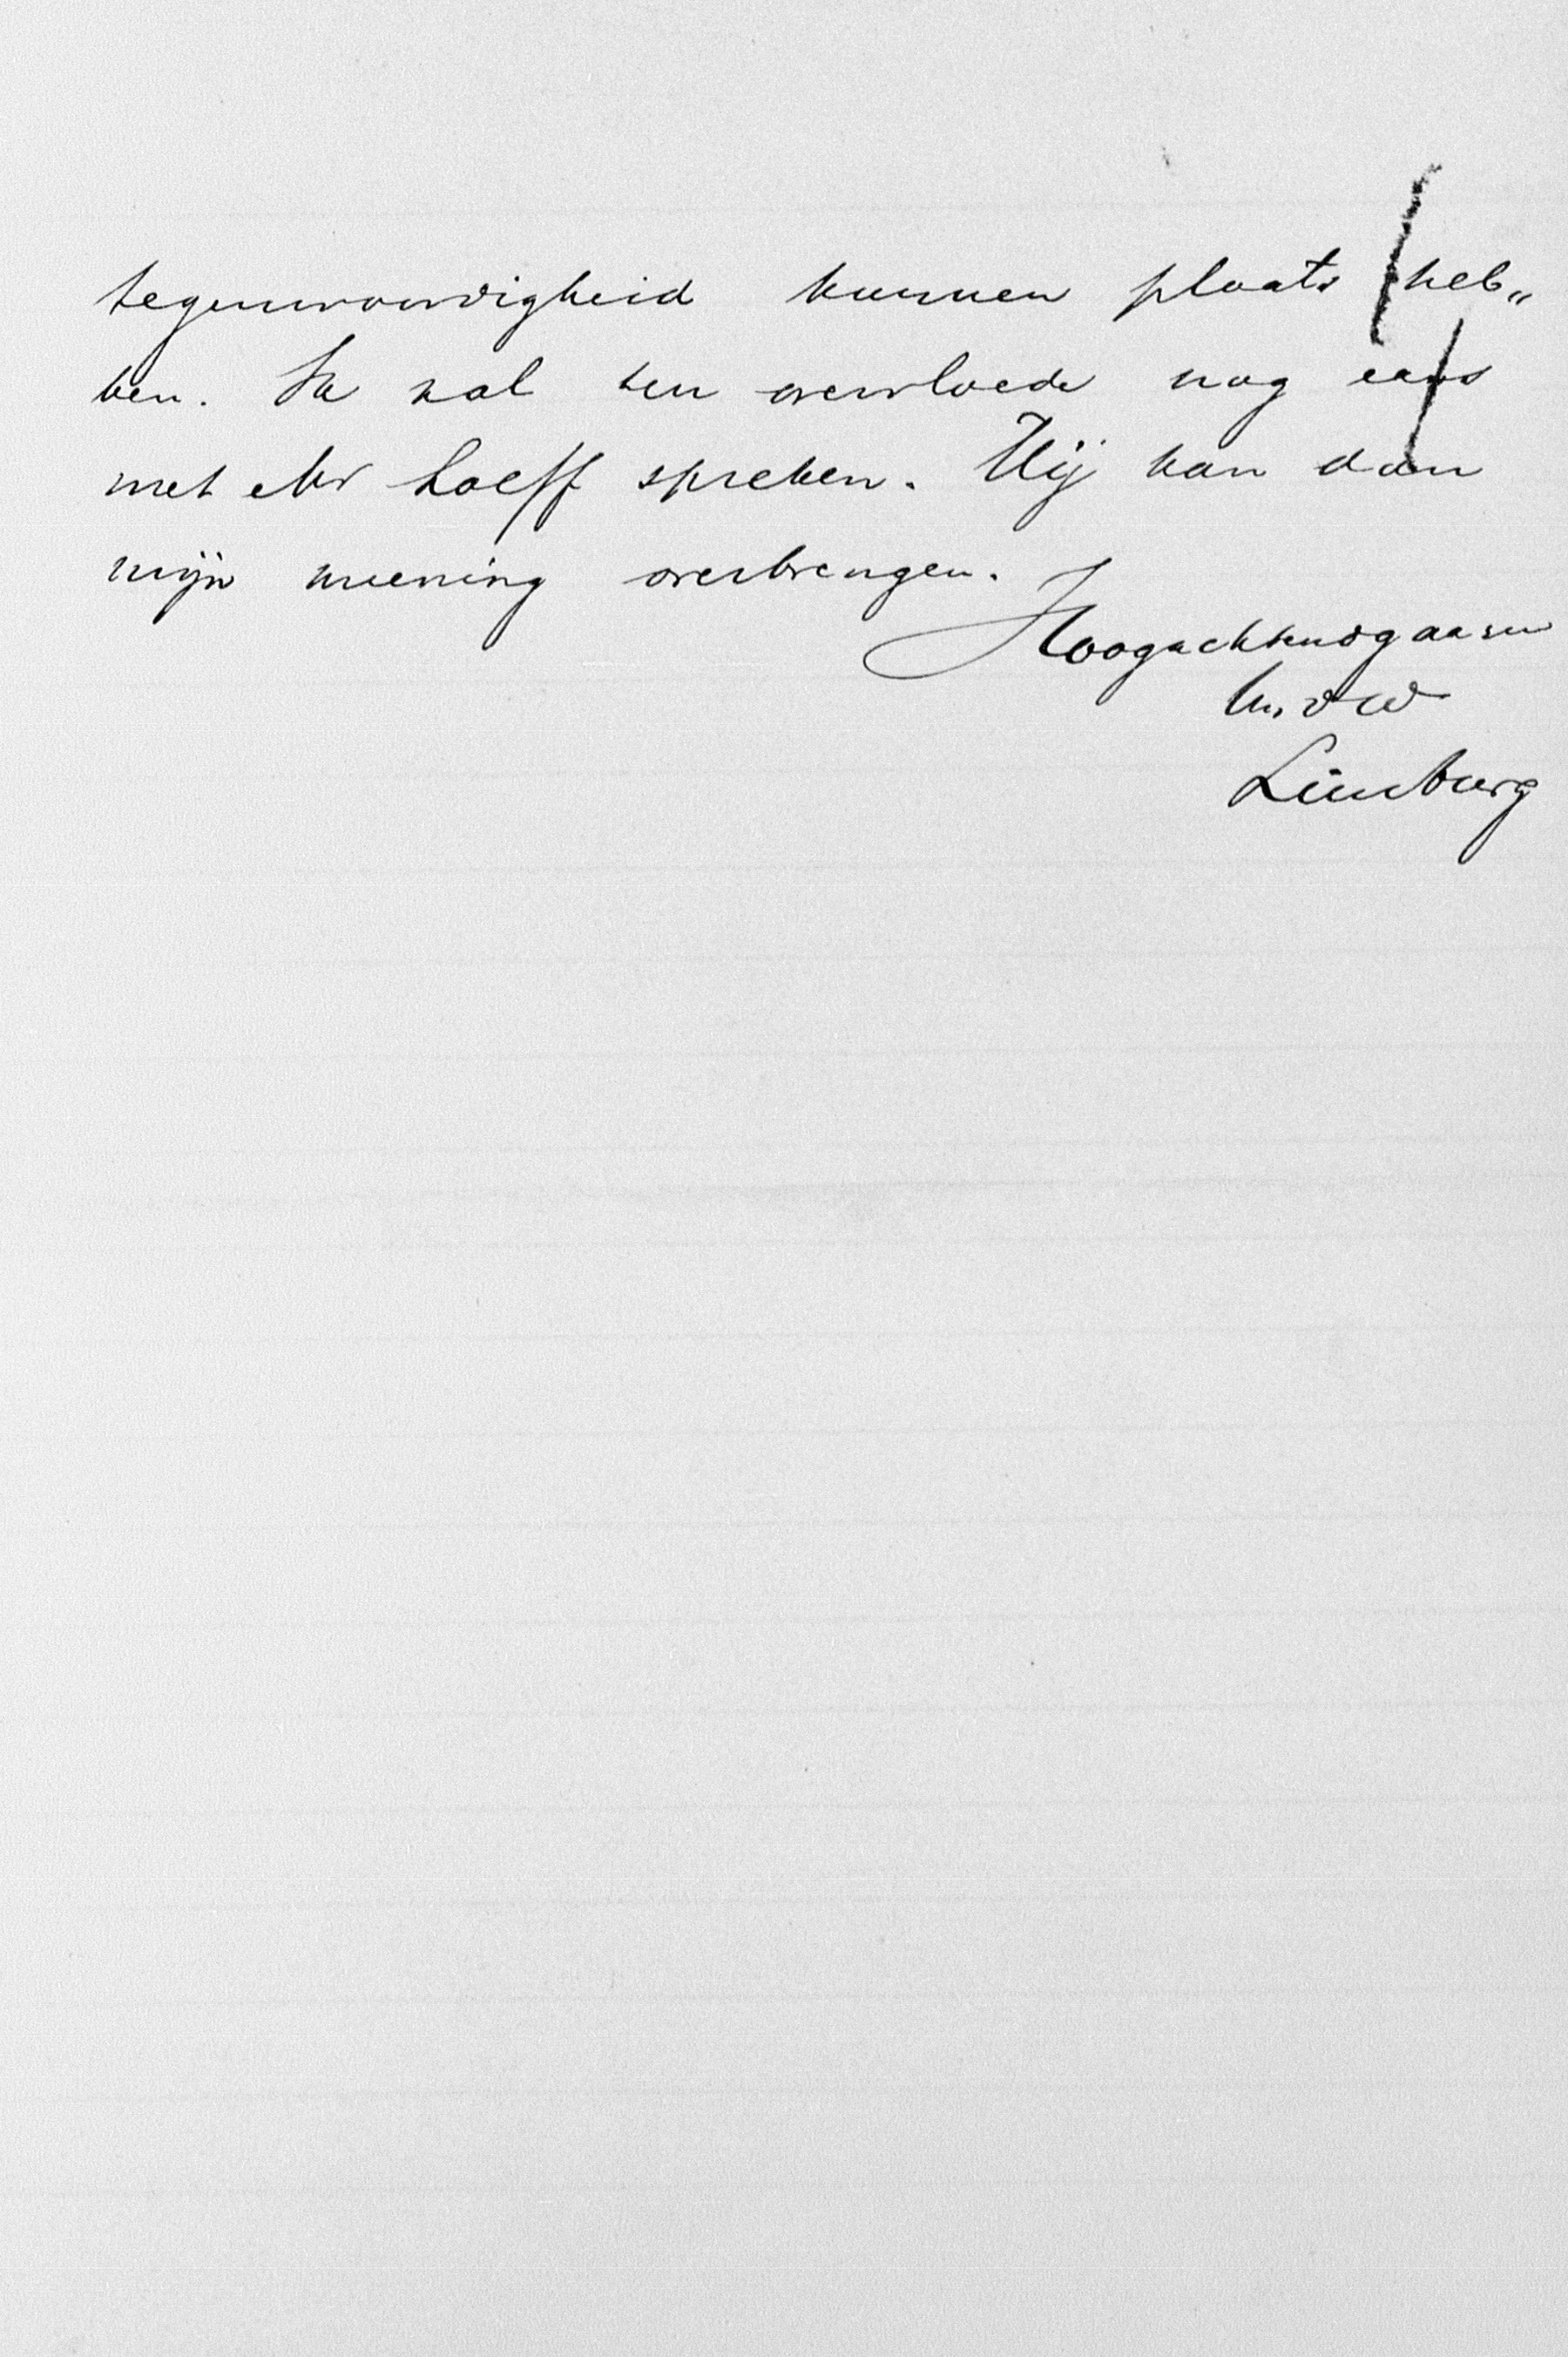 tegenwoordigheid kunnen plaats heb„
ben. Ik zal ten overvloede nog eens
met Mr Loeff spreken. Hij kan dan
mijn meening overbrengen.
Hoogachtend gaarne
Uw dw
Limburg